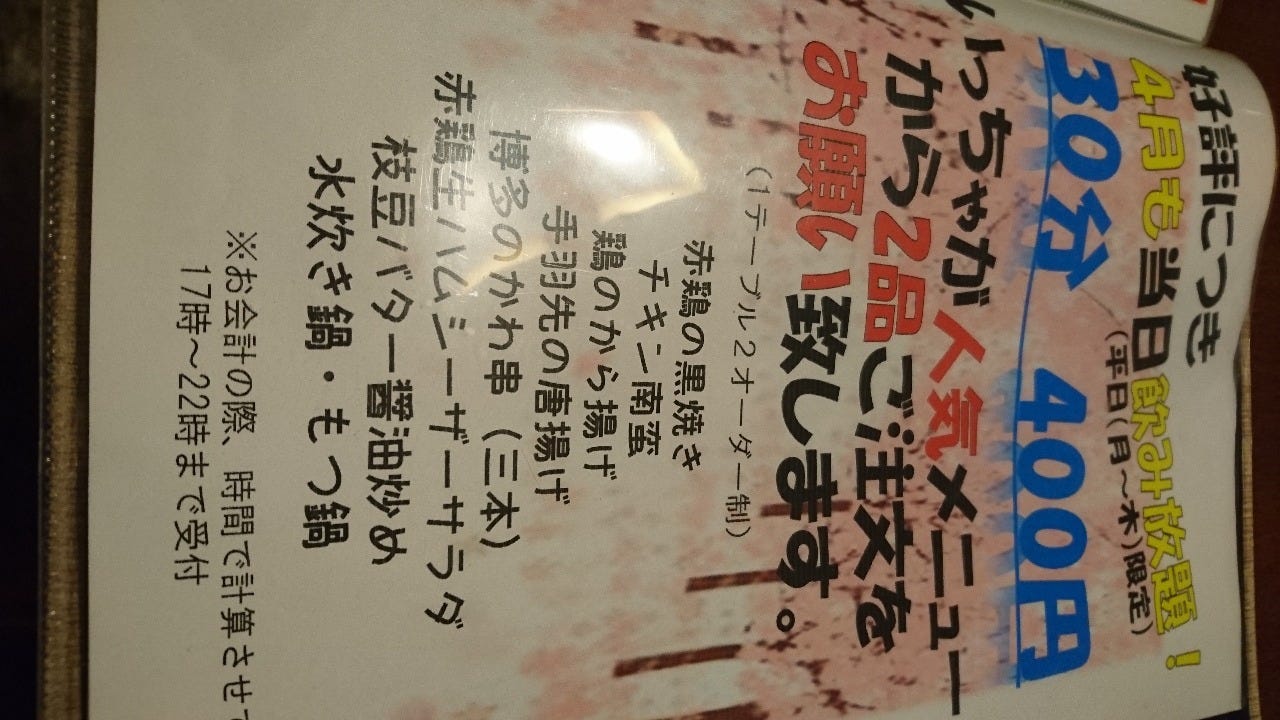 好評につき
4月も当日飲み放題！
(平日(月～木)限定)
30分 400円
いっちゃが人気メニュー
から2品ご注文を
お願い致します。
(1テーブル2オーダー制)
赤鶏の黒焼き
チキン南蛮
鶏のから揚げ
手羽先の唐揚げ
博多のかわ串(三本)
赤鶏生ハムシーザーサラダ
枝豆バター醤油炒め
水炊き鍋・もつ鍋
※お会計の際、時間で計算させて
17時～22時まで受付